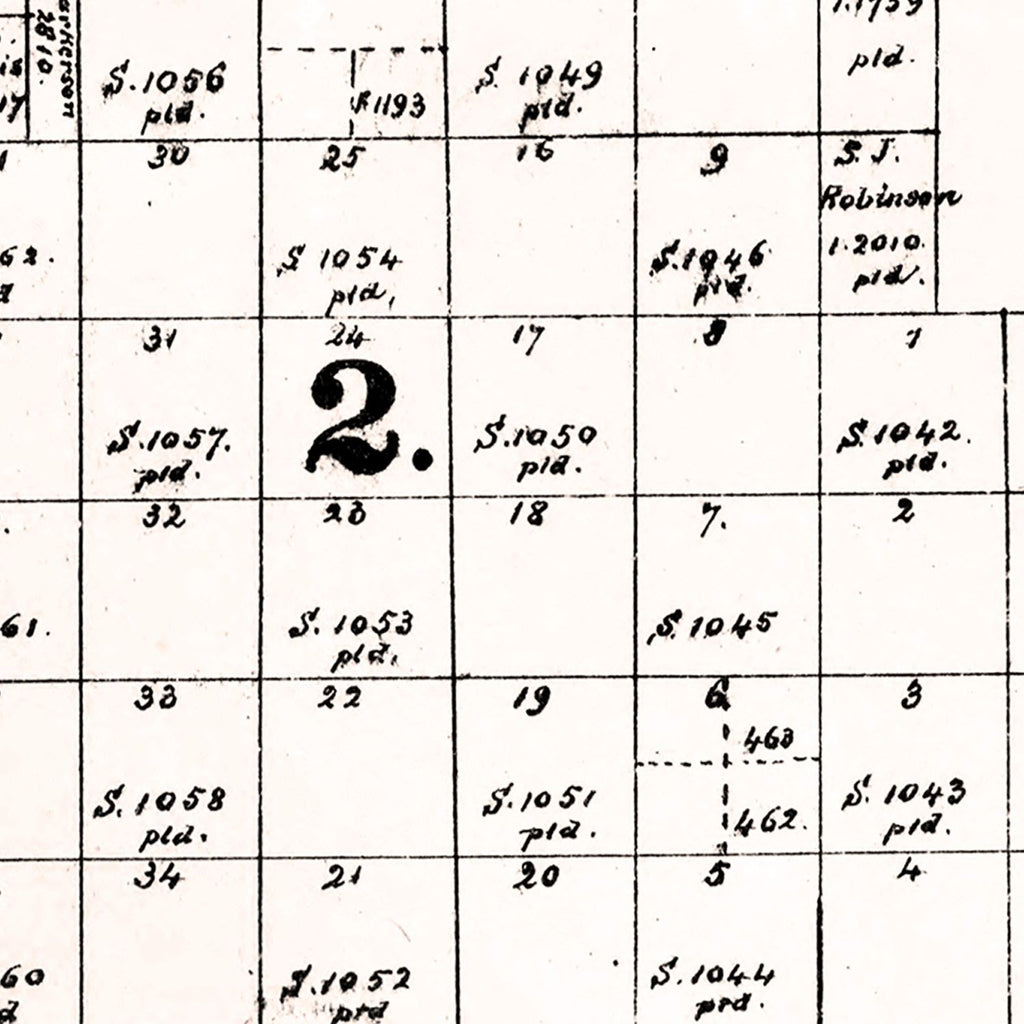 1.1759
pld.
2810.
S.1056
pld.
R1193
S. 1049
pld.
30
25
16
9
S. J.
Robinson
1.2010.
pld.
62.
S 1054
pld,
S.1046
pld.
31
24
17
8
1
2.
S.1057.
pld.
S.1050
pld.
S.1042.
pld.
32
23
18
7.
2
61.
S. 1053
pld,
S. 1045
33
22
19
6
3
463
S.1058
pld.
S.1051
pld.
462.
S. 1043
pld.
34
21
20
5
4
60
S.1052
pld
S.1044
pld.